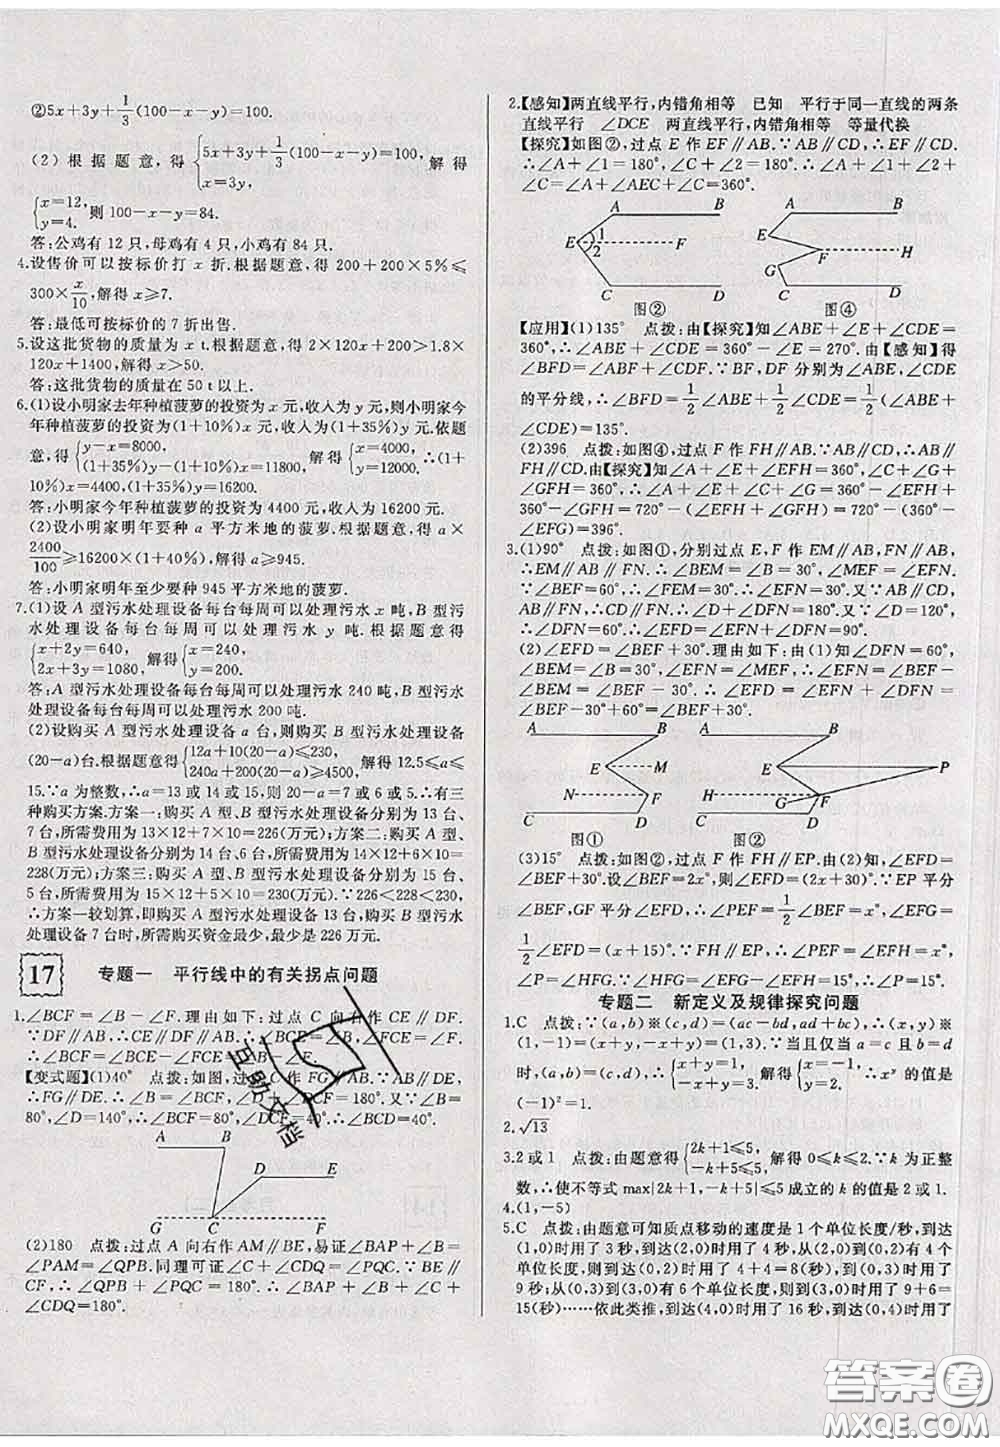 ②5x+3y+1/3(100-x-y)=100.
(2)根据题意,得{5x+3y+1/3(100-x-y)=100, x=3y, 解得
{x=12, y=4. 则100-x-y=84.
答:公鸡有12只,母鸡有4只,小鸡有84只.
4.设售价可以按标价打x折.根据题意,得200+200×5%≤
300×x/10,解得x≥7.
答:最低可按标价的7折出售.
5.设这批货物的质量为x t.根据题意,得2×120x+200>1.8×
120x+1400,解得x>50.
答:这批货物的质量在50 t以上.
6.(1)设小明家去年种植菠萝的投资为x元,收入为y元,则小明家今
年种植菠萝的投资为(1+10%)x元,收入为(1+35%)y元.依题
意,得{y-x=8000, (1+35%)y-(1+10%)x=11800, 解得{x=4000, y=12000. ∴(1+
10%)x=4400,(1+35%)y=16200.
答:小明家今年种植菠萝的投资为4400元,收入为16200元.
(2)设小明家明年要种a平方米地的菠萝.根据题意,得a×
2400/100≥16200×(1+40%),解得a≥945.
答:小明家明年至少要种945平方米地的菠萝.
7.(1)设A型污水处理设备每台每周可以处理污水x吨,B型污
水处理设备每台每周可以处理污水y吨.根据题意得
{x+2y=640, 2x+3y=1080, 解得{x=240, y=200.
答:A型污水处理设备每台每周可以处理污水240吨,B型污水
处理设备每台每周可以处理污水200吨.
(2)设购买A型污水处理设备a台,则购买B型污水处理设备
(20-a)台.根据题意得{12a+10(20-a)≤230, 240a+200(20-a)≥4500, 解得12.5≤a≤
15.∵a为整数,∴a=13或14或15,则20-a=7或6或5.∴有三
种购买方案.方案一:购买A型、B型污水处理设备分别为13台、
7台,所需费用为13×12+7×10=226(万元);方案二:购买A型、
B型污水处理设备分别为14台、6台,所需费用为14×12+6×10=
228(万元);方案三:购买A型、B型污水处理设备分别为15台、
5台,所需费用为15×12+5×10=230(万元).∵226<228<230,
∴方案一较划算,即购买A型污水处理设备13台,购买B型污水
处理设备7台时,所需购买资金最少,最少是226万元.
17 专题一 平行线中的有关拐点问题
1.∠BCF=∠B-∠F.理由如下:过点C向右作CE∥DF.
∵DF∥AB,∴CE∥DF∥AB.∴∠B=∠BCE,∠F=∠FCE.
∴∠BCF=∠BCE-∠FCE=∠B-∠F.
【变式题】(1)40° 点拨:如图,过点C作FG∥AB.∵AB∥DE,
∴FG∥DE.∴∠B=∠BCF,∠D+∠DCF=180°.又∵∠B=
80°,∠D=140°,∴∠BCF=80°,∠DCF=40°.∴∠BCD=40°.
A B
D E
G C F
(2)180 点拨:过点A向右作AM∥BE,易证∠BAP+∠B=
∠PAM=∠QPB.同理可证∠C+∠CDQ=∠PQC.∵BE∥
CF,∴∠QPB+∠PQC=180°.∴∠BAP+∠B+∠C+
∠CDQ=180°.
2.【感知】两直线平行,内错角相等 已知 平行于同一直线的两条
直线平行 ∠DCE 两直线平行,内错角相等 等量代换
【探究】如图②,过点E作EF∥AB.∵AB∥CD,∴EF∥CD.
∴∠A+∠1=180°,∠C+∠2=180°.∴∠A+∠1+∠2+
∠C=∠A+∠AEC+∠C=360°.
A B
E 1 2 F
C D
图②
A B
F H
G
C D
图④
【应用】(1)135° 点拨:由【探究】知∠ABE+∠E+∠CDE=
360°,∴∠ABE+∠CDE=360°-∠E=270°.由【感知】得
∠BFD=∠ABF+∠CDF.∵BF,DF分别为∠ABE,∠CDE
的平分线,∴∠BFD=1/2∠ABE+1/2∠CDE=1/2(∠ABE+
∠CDE)=135°.
(2)396 点拨:如图④,过点F作FH∥AB.∵AB∥CD,∴AB
∥FH∥CD.由【探究】知∠A+∠E+∠EFH=360°,∠C+∠G+
∠GFH=360°.∴∠A+∠E+∠C+∠G=720°-(∠EFH+
∠GFH)=720°-(∠EFH+∠GFH)=720°-(360°-
∠EFG)=396°.
3.(1)90° 点拨:如图①,分别过点E,F作EM∥AB,FN∥AB,
∴EM∥AB∥FN.∴∠BEM=∠B=30°,∠MEF=∠EFN.
又∵AB∥CD,∴FN∥CD.∴∠D+∠DFN=180°.又∵∠D=120°,
∴∠DFN=60°.∴∠EFD=∠EFN+∠DFN=90°.
(2)∠EFD=∠BEF+30°.理由如下:由(1)知∠DFN=60°,
∠BEM=∠B=30°,∠EFN=∠MEF,∴∠EFN=∠BEF-
∠BEM=∠BEF-30°.∴∠EFD=∠EFN+∠DFN=
∠BEF-30°+60°=∠BEF+30°.
A B
E M
N F
C D
图①
A B
E P
H G F
C D
图②
(3)15° 点拨:如图②,过点F作FH∥EP.由(2)知,∠EFD=
∠BEF+30°.设∠BEF=2x°,则∠EFD=(2x+30)°.∵EP平分
∠BEF,GF平分∠EFD,∴∠PEF=1/2∠BEF=x°,∠EFG=
1/2∠EFD=(x+15)°.∵FH∥EP,∴∠PEF=∠EFH=x°,
∠P=∠HFG.∵∠HFG=∠EFG-∠EFH=15°,∴∠P=15°.
专题二 新定义及规律探究问题
1.C 点拨:∵(a,b)※(c,d)=(ac-bd,ad+bc),∴(x,y)※
(1,-1)=(x+y,-x+y)=(1,3).∵当且仅当a=c且b=d
时,(a,b)=(c,d),∴{x+y=1, -x+y=3. 解得{x=-1, y=2. ∴xʸ的值是
(-1)²=1.
2.√13
3.2或1 点拨:由题意得{2k+1≤5, -k+5≤5, 解得0≤k≤2.∵k为正整
数,∴使不等式max|2k+1,-k+5|≤5成立的k的值是2或1.
4.(1,-5)
5.C 点拨:由题意可知质点移动的速度是1个单位长度/秒,到达
(1,0)时用了3秒,到达(2,0)时用了4秒,从(2,0)到(0,2)有
4个单位长度,则到达(0,2)时用了4+4=8(秒),到达(0,3)时用了
9秒;从(0,3)到(3,0)有6个单位长度,则到(3,0)时用了9+6=
15(秒)……依此类推,到达(4,0)时用了16秒,到达(0,4)时用了
互助文档
答案圈
MXQE.COM